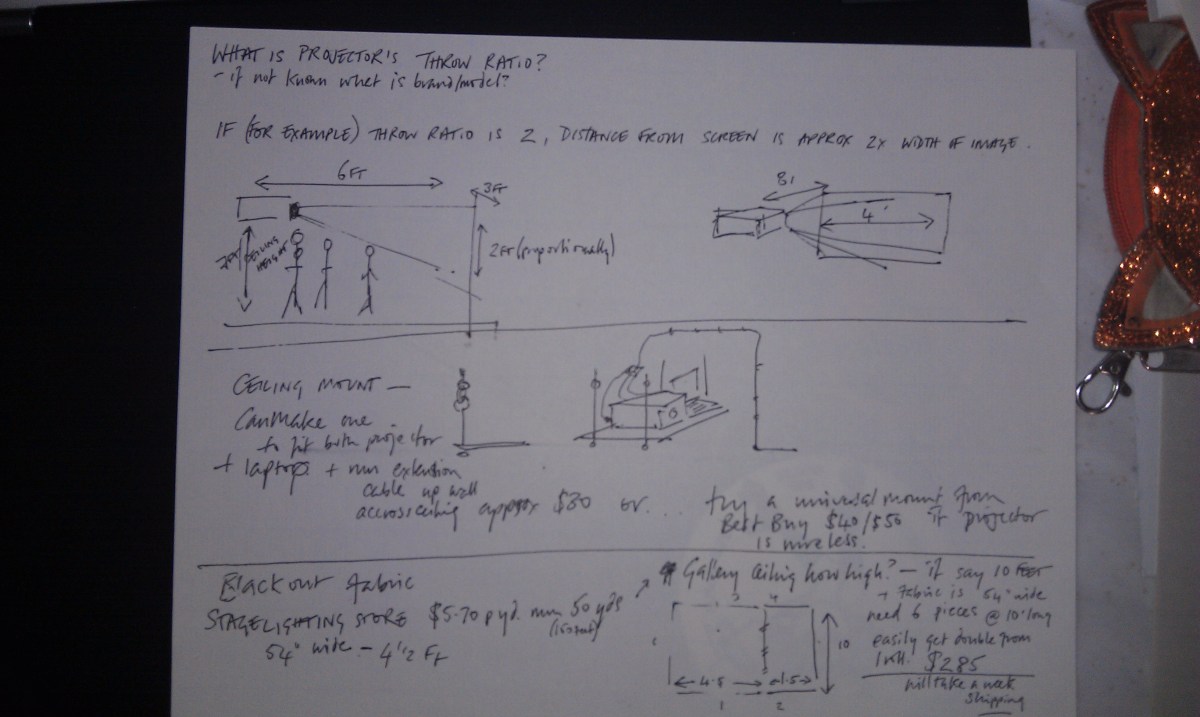 WHAT IS PROJECTOR'S THROW RATIO?
- if not known what is brand/model?
IF (FOR EXAMPLE) THROW RATIO IS 2, DISTANCE FROM SCREEN IS APPROX 2X WIDTH OF IMAGE.
6FT
3FT
2FT (proportionally)
7FT CEILING HEIGHT
8'
4'
CEILING MOUNT -
Can Make one
to fit both projector
+ laptop + run extension
cable up wall
accross ceiling approx $30 or...
try a universal mount from
Best Buy $40/$50 if projector
is wireless.
Blackout fabric
STAGELIGHTING STORE $5.70 p yd. min 50 yds
(150 feet)
54" wide - 4 1/2 Ft
Gallery Ceiling how high? - if say 10 FEET
+ Fabric is 54" wide
need 6 pieces @ 10' long
easily get double from
1 roll. $285
will take a week
shipping
3 4
10
4.5
1.5
1 2